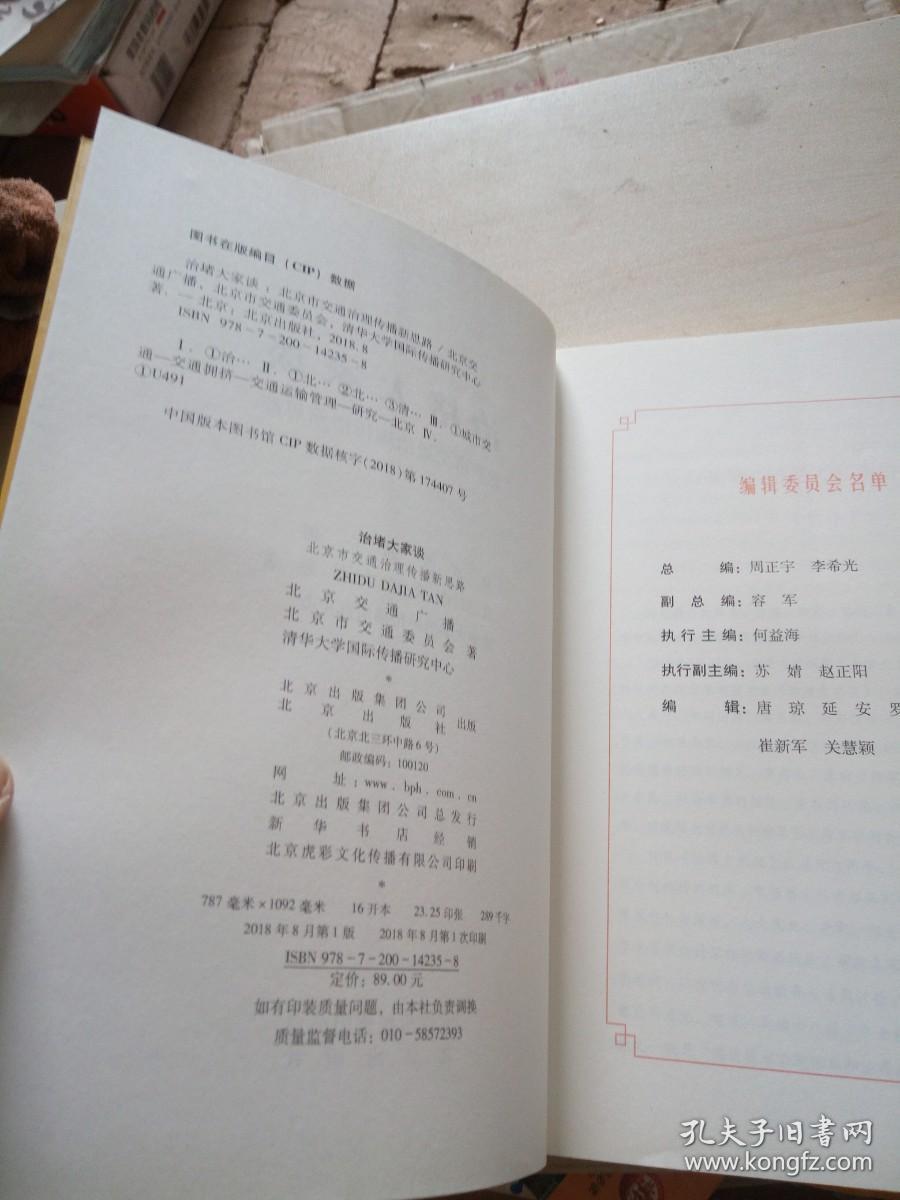 图书在版编目（CIP）数据
治堵大家谈：北京市交通治理传播新思路／北京交
通广播，北京市交通委员会，清华大学国际传播研究中心
著．—北京：北京出版社，2018.8
ISBN 978-7-200-14235-8
Ⅰ．①治… Ⅱ．①北… ②北… ③清… Ⅲ．①城市交
通—交通拥挤—交通运输管理—研究—北京 Ⅳ．
①U491
中国版本图书馆 CIP 数据核字（2018）第 174407 号
治堵大家谈
北京市交通治理传播新思路
ZHIDU DAJIA TAN
北京交通广播
北京市交通委员会 著
清华大学国际传播研究中心
*
北京出版集团公司 出版
北京出版社
（北京北三环中路6号）
邮政编码：100120
网 址：www.bph.com.cn
北京出版集团公司总发行
新华书店经销
北京虎彩文化传播有限公司印刷
*
787毫米×1092毫米 16开本 23.25印张 289千字
2018年8月第1版 2018年8月第1次印刷
ISBN 978-7-200-14235-8
定价：89.00元
如有印装质量问题，由本社负责调换
质量监督电话：010-58572393
编辑委员会名单
总 编：周正宇 李希光
副总编：容 军
执行主编：何益海
执行副主编：苏 婧 赵正阳
编 辑：唐 琼 延 安 罗
崔新军 关慧颖
孔夫子旧书网
www.kongfz.com